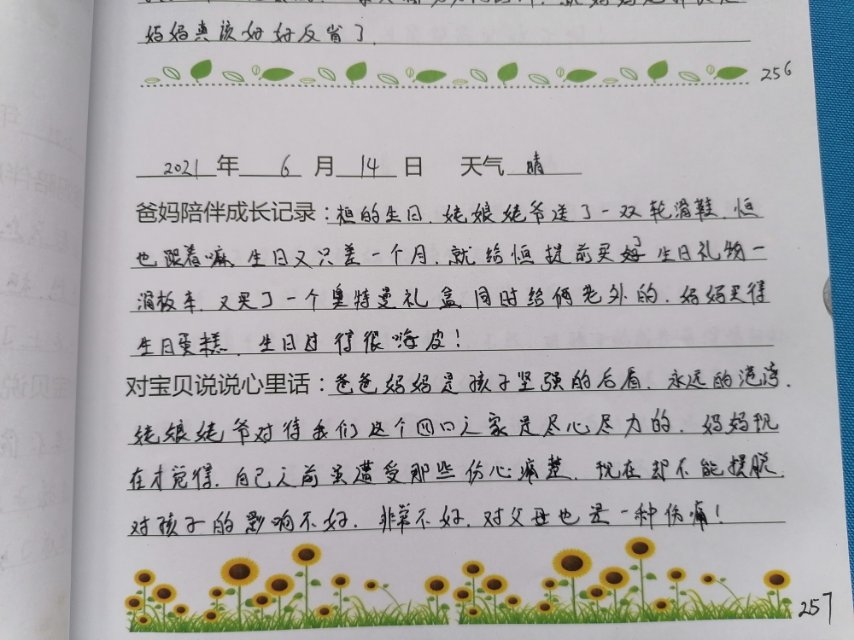 妈妈真该好好反省了.
256
2021 年 6 月 14 日 天气 晴
爸妈陪伴成长记录：桓的生日, 姥娘姥爷送了一双轮滑鞋, 恒
也跟着嘛, 生日又只差一个月, 就给恒提前买好了生日礼物一
滑板车, 又买了一个奥特曼礼盒, 同时给俩老外的, 妈妈买得
生日蛋糕, 生日过得很嗨皮!
对宝贝说说心里话：爸爸妈妈是孩子坚强的后盾, 永远的港湾.
姥娘姥爷对待我们这个四口之家是尽心尽力的, 妈妈现
在才觉得, 自己之前虽遭受那些伤心痛楚, 现在却不能摆脱,
对孩子的影响不好, 非常不好, 对父母也是一种伤痛!
257